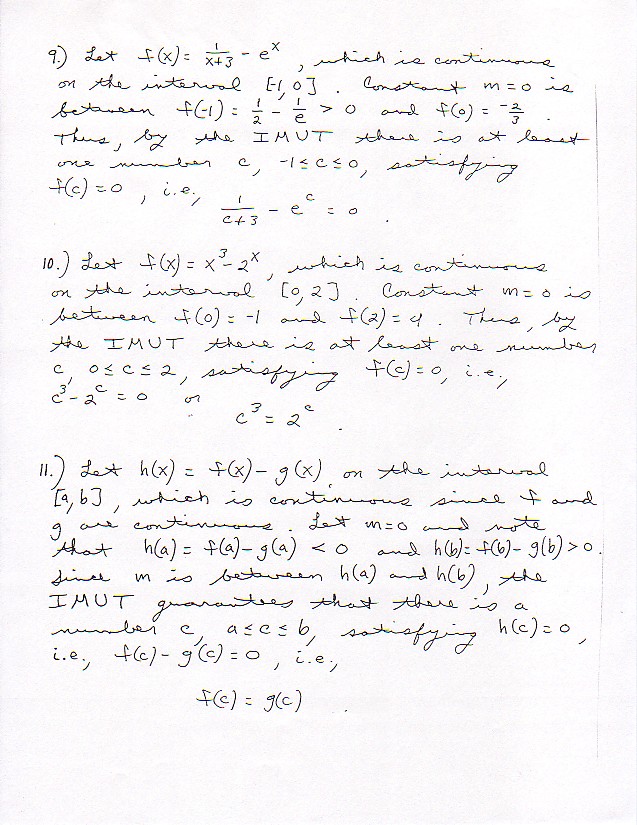 9.) Let f(x) = 1/(x+3) - e^x , which is continuous
on the interval [-1, 0] . Constant m = 0 is
between f(-1) = 1/2 - 1/e > 0 and f(0) = -2/3 .
Thus, by the IMUT there is at least
one number c, -1 ≤ c ≤ 0, satisfying
f(c) = 0 , i.e.,
1/(c+3) - e^c = 0 .
10.) Let f(x) = x^3 - 2^x , which is continuous
on the interval [0, 2] . Constant m = 0 is
between f(0) = -1 and f(2) = 4 . Thus, by
the IMUT there is at least one number
c, 0 ≤ c ≤ 2, satisfying f(c) = 0, i.e.,
c^3 - 2^c = 0 or
c^3 = 2^c .
11.) Let h(x) = f(x) - g(x) on the interval
[a, b] , which is continuous since f and
g are continuous . Let m = 0 and note
that h(a) = f(a) - g(a) < 0 and h(b) = f(b) - g(b) > 0 .
Since m is between h(a) and h(b) , the
IMUT guarantees that there is a
number c, a ≤ c ≤ b, satisfying h(c) = 0 ,
i.e., f(c) - g(c) = 0 , i.e.,
f(c) = g(c) .